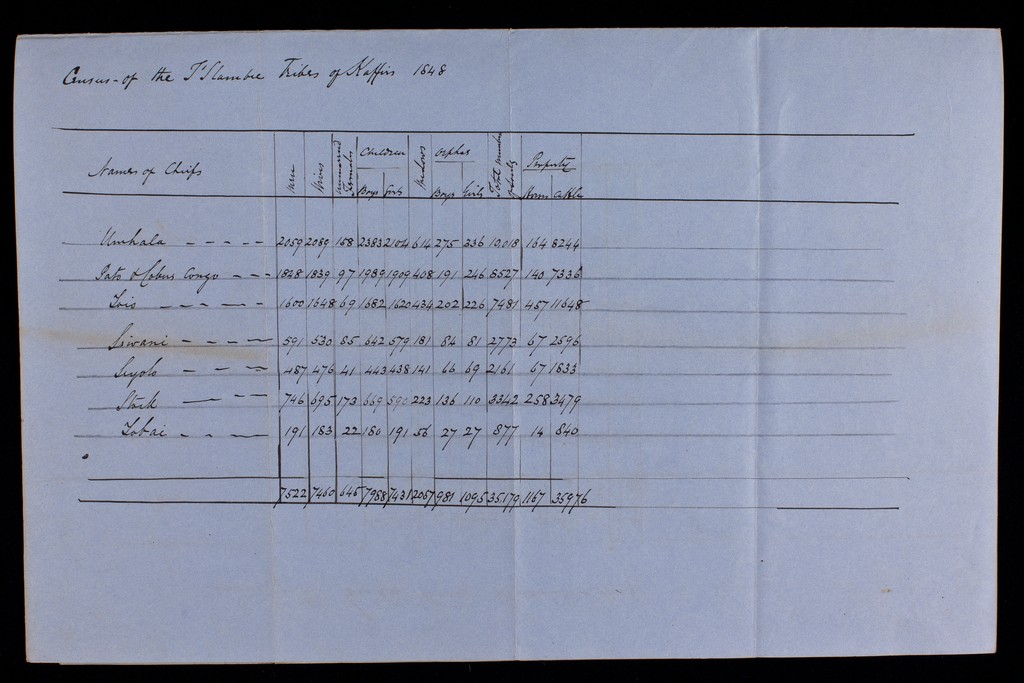 Census - of the T'Slambie Tribes of Kaffirs 1848
Names of Chiefs | Men | Wives | Unmarried Females | Children Boys | Girls | Widows | Orphs Boys | Girls | Total number of Souls | Property Horses | Cattle
Umhala - - - - - 2059 2089 158 2383 2104 614 275 336 10,018 164 8244
Pato & Cobus Congo - - - 1828 1839 97 1989 1909 408 191 246 8527 140 7336
Tois - - - - - 1600 1648 69 1682 1620 434 202 226 7481 457 11648
Siwani - - - - 591 530 85 642 579 181 84 81 2773 67 2596
- - - 487 476 41 443 438 141 66 69 2161 67 1833
Stock - - - 746 695 173 669 590 223 136 110 3342 258 3479
Tobai - - - - 191 183 22 180 191 56 27 27 877 14 840
7522 7460 645 7988 7431 2057 981 1095 35179 1167 35976